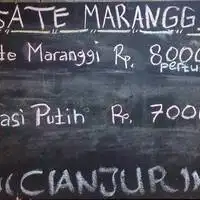 SATE MARANGG
te Maranggi Rp. 8000
pertu
asi Putih Rp. 7000
CIANJUR